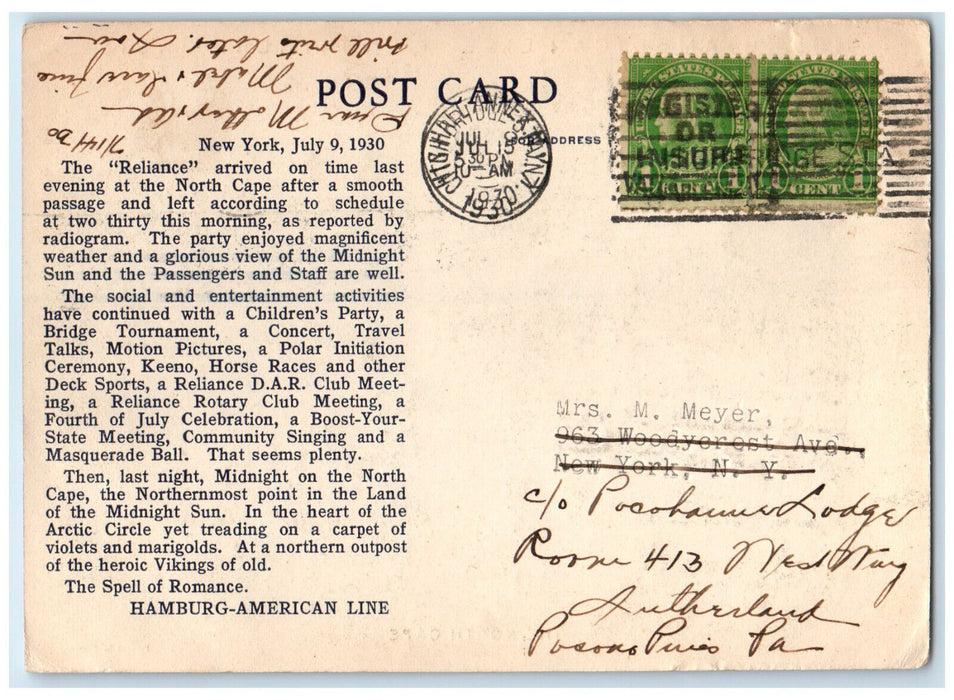 7/14/30
Dear Motherdid
Mabel & Lara fine
Will write later. Love
POST CARD
FOR ADDRESS
New York, July 9, 1930
The "Reliance" arrived on time last
evening at the North Cape after a smooth
passage and left according to schedule
at two thirty this morning, as reported by
radiogram. The party enjoyed magnificent
weather and a glorious view of the Midnight
Sun and the Passengers and Staff are well.
The social and entertainment activities
have continued with a Children's Party, a
Bridge Tournament, a Concert, Travel
Talks, Motion Pictures, a Polar Initiation
Ceremony, Keeno, Horse Races and other
Deck Sports, a Reliance D.A.R. Club Meet-
ing, a Reliance Rotary Club Meeting, a
Fourth of July Celebration, a Boost-Your-
State Meeting, Community Singing and a
Masquerade Ball. That seems plenty.
Then, last night, Midnight on the North
Cape, the Northernmost point in the Land
of the Midnight Sun. In the heart of the
Arctic Circle yet treading on a carpet of
violets and marigolds. At a northern outpost
of the heroic Vikings of old.
The Spell of Romance.
HAMBURG-AMERICAN LINE
JUL
1930
OR
INSURE
1 CENT 1
Mrs. M. Meyer,
963 Woodycrest Ave.,
New York, N. Y.
c/o Pocohanne Lodge
Room 413 West Wing
Sutherland
Pocono Pines Pa